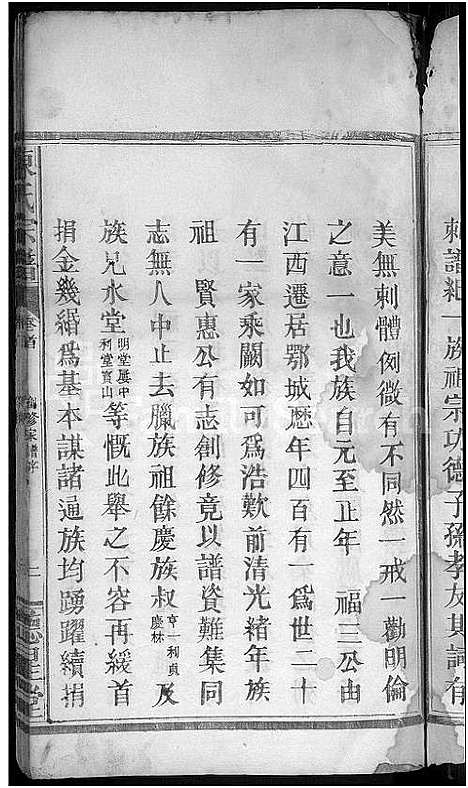 刺譜紀一族祖宗功德子孫孝友其詞有
美無刺體例微有不同然一戒一勸明倫
之意一也我族自元至正年 福三公由
江西遷居鄂城歷年四百有一爲世二十
有一家乘闕如可爲浩歎前清光緒年族
祖 賢惠公有志創修竟以譜資難集同
志無人中止去臘族祖餘慶族叔亨一利貞慶林及
族兄水堂明堂屢中利堂寳山等慨此舉之不容再緩首
捐金幾緡爲基本謀諸通族均踴躍續捐
陳氏宗譜 卷首 修家譜序 二 德星堂